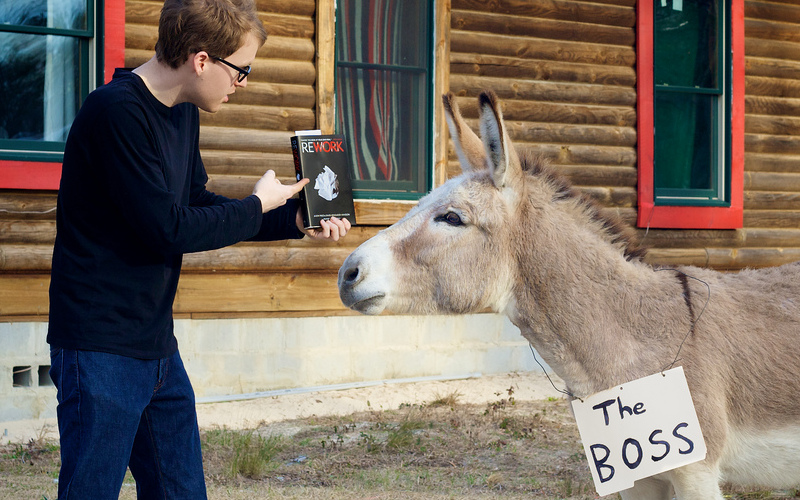 REWORK
The
BOSS